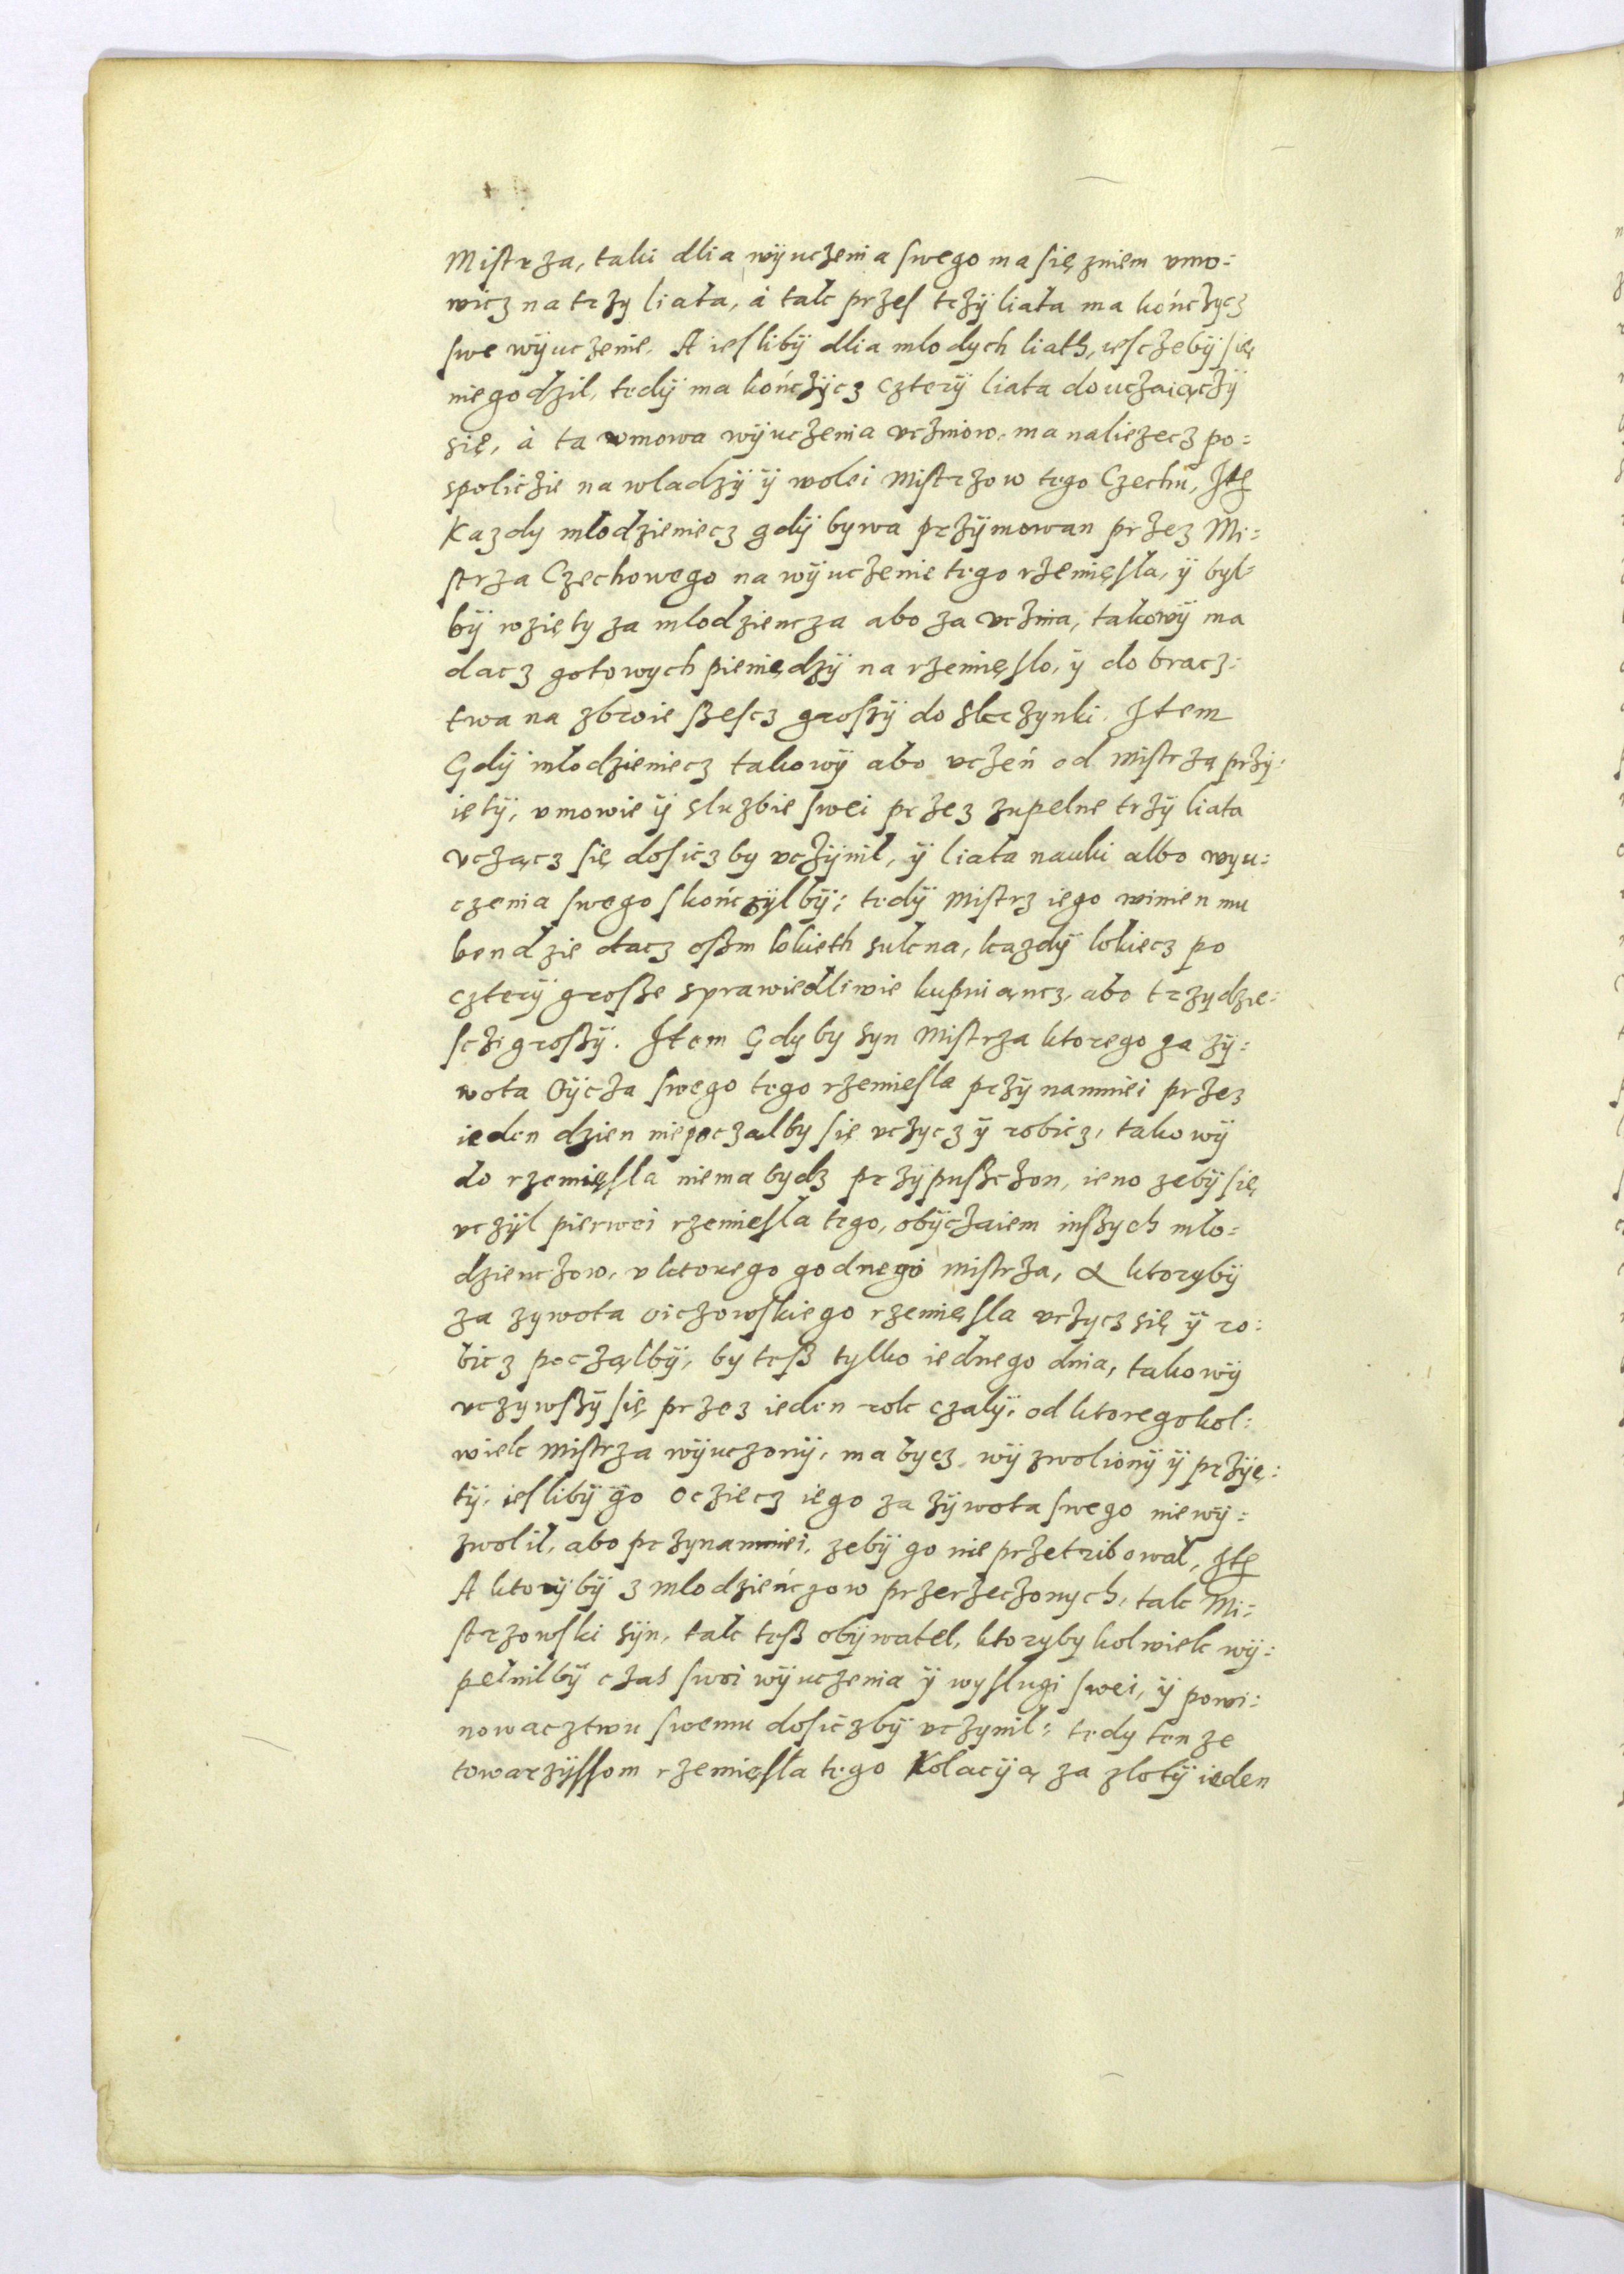 Mistrza, taki dlia wÿuczenia swego ma się zniem vmo=
wicz na trzy liata, à tak przes trzÿ liata ma kończycz
swe wÿuczenie. A iesliby̋ dlia mlodych liath, iesczebÿ się
niegodzil, tedÿ ma kończÿcz czterÿ liata douczaiączÿ
się, à ta vmowa wÿuczenia vczniow. ma naliezecz po=
spoliczie na wladzÿ ÿ wolei Mistrzow tego Czechu, Ite
Kazdy mlodzieniecz gdÿ bywa przÿmowan przez Mi=
strza Czechowego na wÿuczenie tego rzemięsla, ÿ byl=
bÿ wzięty za mlodziencza abo za vcznia, takowÿ ma
dacz gotowych pieniędzÿ na rzemięslo, ÿ do bracz=
twa na zbroie ßescz großÿ do skrzynki. Item
Gdÿ mlodzieniecz takowÿ abo vczeń od Mistrzą przÿ=
iętÿ, vmowie ÿ sluzbie swei przez zupelne trzÿ liata
vcząncz się dosicz by vczÿnil, ÿ liata nauki albo wyu=
czenia swego skończÿlbÿ; tedÿ Mistrz iego winien mu
bendzie dacz oßm lokieth sukna, kazdÿ lokiecz po
czterÿ große sprawiedliwie kupuiąncz, abo trzydzie=
sczi großÿ. Item Gdyby syn Mistrza ktorego za zÿ=
wota Oÿcza swego tego rzemiesla przÿnamniei przez
ieden dzien niepoczalby się vczycz ÿ robicz, takowÿ
do rzemięsla niema bydz przÿpußczon, ieno zebÿ się
vczÿl pierwei rzemiesla tego, obÿczaiem inßych mlo=
dzienczow, v ktorego godnego Mistrza, A ktorybÿ
za zywota oiczowskiego rzemięsla vczycz się ÿ ro=
bicz począlbÿ, by teß tylko iednego dnia, takowÿ
vczywßÿ się przez ieden rok czalÿ, od ktoregokol=
wiek Mistrza wÿuczonÿ, ma bycz wÿzwolionÿ ÿ przÿię=
tÿ, ieslibÿ go oczieCz iego za zÿwota swego niewÿ=
zwolil, abo przynamniei, zebÿ go nie przetribowal, Ite
A ktorÿbÿ z mlodzieńczow przerzeczonych, tak Mi=
strzowski sÿn, tak teß obÿwatel, ktoryby kolwiek wÿ=
pelnilbÿ czas swoi wÿuczenia ÿ wyslugi swei, ÿ powi=
nowacztwu swemu dosiczbÿ vczynil; tedy ten ze
towarzÿssom rzemięsla tego Kolacyą za zlotÿ ieden